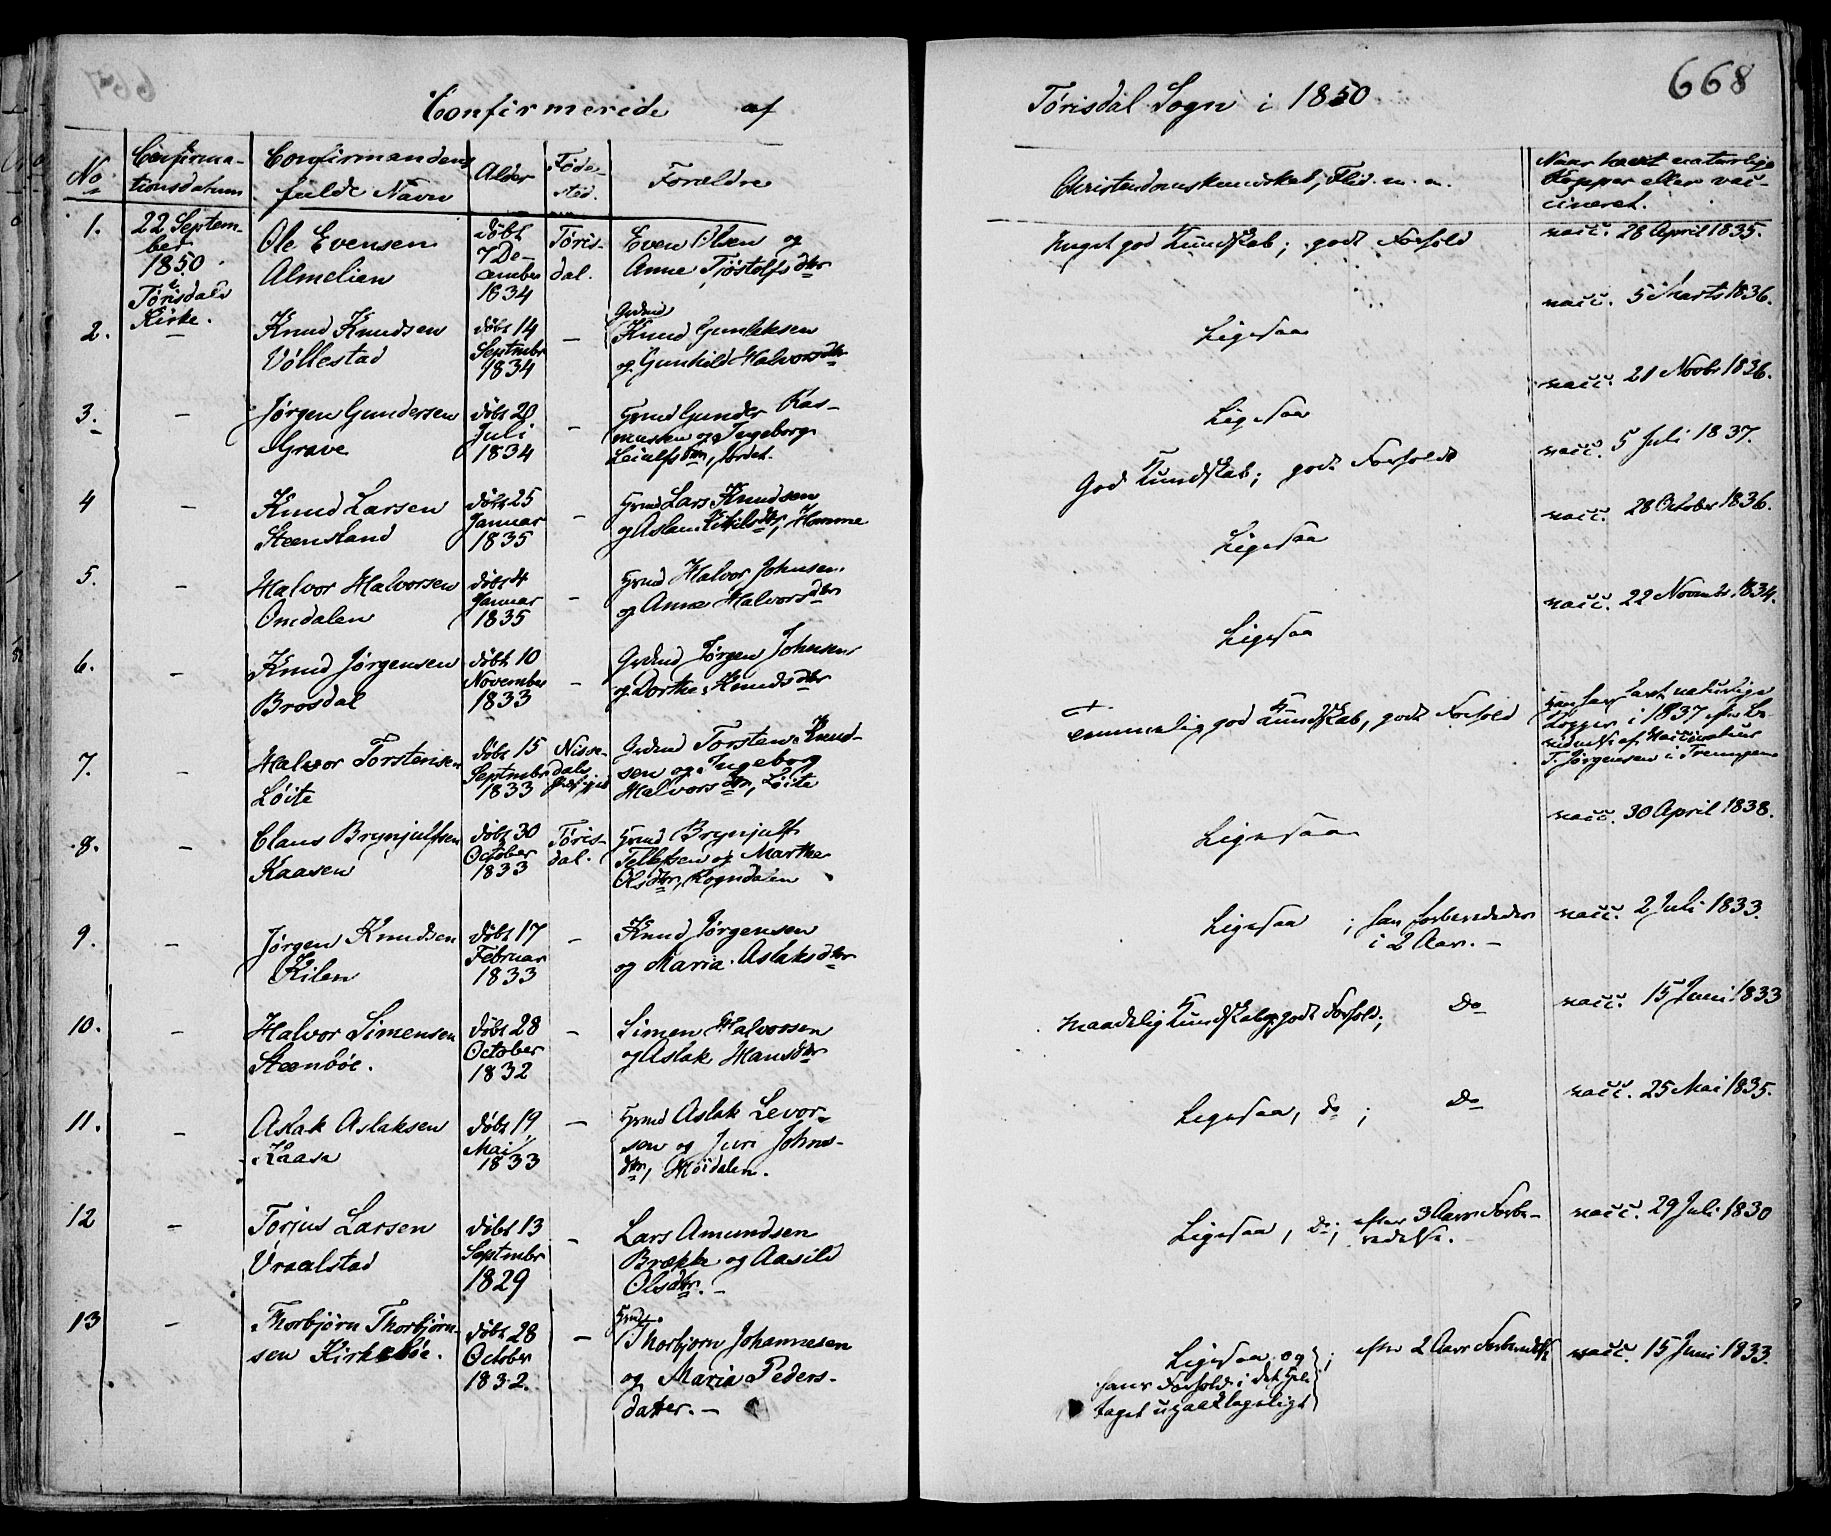 Confirmerede af Tørisdal Sogn i 1850
668
No
Confirma-
tionsdatum
Confirmandens
fulde Navn
Alder
Føde-
sted.
Forældre
Christendomskundskab, Flid m. m.
Naar havt naturlige
Kopper eller vac-
cineret.
1.
22 Septem-
ber
1850
i
Tørisdals
Kirke.
Ole Evensen
Almelien
døbt
7 De-
cember
1834
Tøris-
dal.
Even Olsen og
Anne Tjøstolfsdtr
Meget god Kundskab; godt Forhold
vacc. 28 April 1835.
2.
–
Knud Knudsen
Vøllestad
døbt 14
Septmbr
1834
–
Grdmd
Knud Gunliksen
og Gunhild Halvorsdtr
Ligesaa
vacc. 5 Marts 1836.
3.
–
Jørgen Gundersen
Grave
døbt 20
Juli
1834
–
Hmd Gunder Ras-
mussen og Ingeborg
Leialfsdtr, Jordet.
Ligesaa
vacc. 21 Novbr 1836.
4
–
Knud Larsen
Steensland
døbt 25
Januar
1835
–
Hmd Lars Knudsen
og Aslau Kittilsdtr, Homme
God Kundskab; godt Forhold
vacc. 5 Juli 1837.
5.
–
Halvor Halvorsen
Omdalen
døbt 4
Januar
1835
–
Hmd Halvor Johnsen
og Anne Halvorsdtr
Ligesaa
vacc. 28 October 1836.
6.
–
Knud Jørgensen
Brosdal
døbt 10
November
1833
–
Grdmd Jørgen Johnsen
og Dorthe Knudsdtr
Ligesaa
vacc. 22 Novembr 1834.
7.
–
Halvor Torstensen
Løite
døbt 15
Septmbr
1833
Nisse-
dals
Grdmd Torsten Knud-
sen og Ingebog
Halvorsdtr, Løite
Temmelig god Kundskab, godt Forhold
han har havt naturlige
Kopper i 1837 efter Be-
retning af Vaccinateur
T. Jørgensen i Trempen
8.
–
Claus Brynjulfsen
Kaasen
døbt 30
October
1833
Tøris-
dal.
Hmd Brynjulf
Tellefsen og Marthe
Olsdtr, Rogndalen
Ligesaa
vacc. 30 April 1838.
9.
–
Jørgen Knudsen
Kilen
døbt 17
Februar
1833
–
Knud Jørgensen
og Maria Aslaksdtr
Ligesaa; han forberededes
i 2 Aar. –
vacc. 2 Juli 1833.
10.
–
Halvor Simensen
Steenbøe.
døbt 28
October
1832
–
Simen Halvorsen
og Aslak Hansdtr
Maadelig Kundskab, godt Forhold; do
vacc. 15 Juni 1833
11.
–
Aslak Aslaksen
Kaasa
døbt 19
Mai
1833
–
Hmd Aslak Levor-
sen og Juri Johns-
dtr, Moidalen.
Ligesaa, do; do
vacc. 25 Mai 1835.
12
–
Torjus Larsen
Vraalstad
døbt 13
Septmbr
1829
–
Lars Amundsen
Brække og Aasild
Olsdtr. –
Ligesaa, do; efter 3 Aars Forbe-
redelse.
vacc. 29 Juli 1830
13
–
Thorbjørn Thorbjørn-
sen Kirkebøe.
døbt 28
October
1832.
–
Hmd
Thorbjørn Johannesen
og Maria Peders-
datter. –
Ligesaa, og; efter 2 Aars Forberedelse
hans Forhold i det Hele
taget upaaklageligt
vacc. 15 Juni 1833.